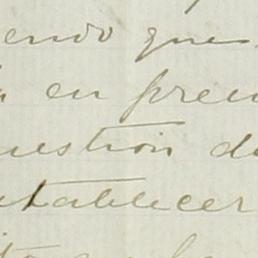 endo que
en pren
uestion de
stablecer